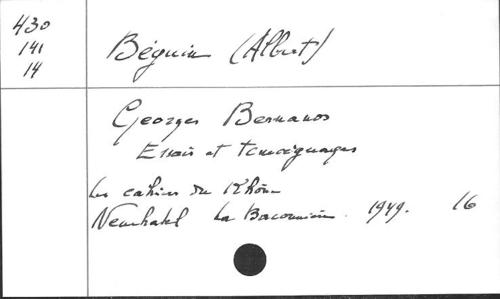 430
141
14
Béguin (Albert)
Georges Bernanos
Essais et témoignages
Les cahiers du Rhône
Neuchatel La Baconnière. 1949. 16